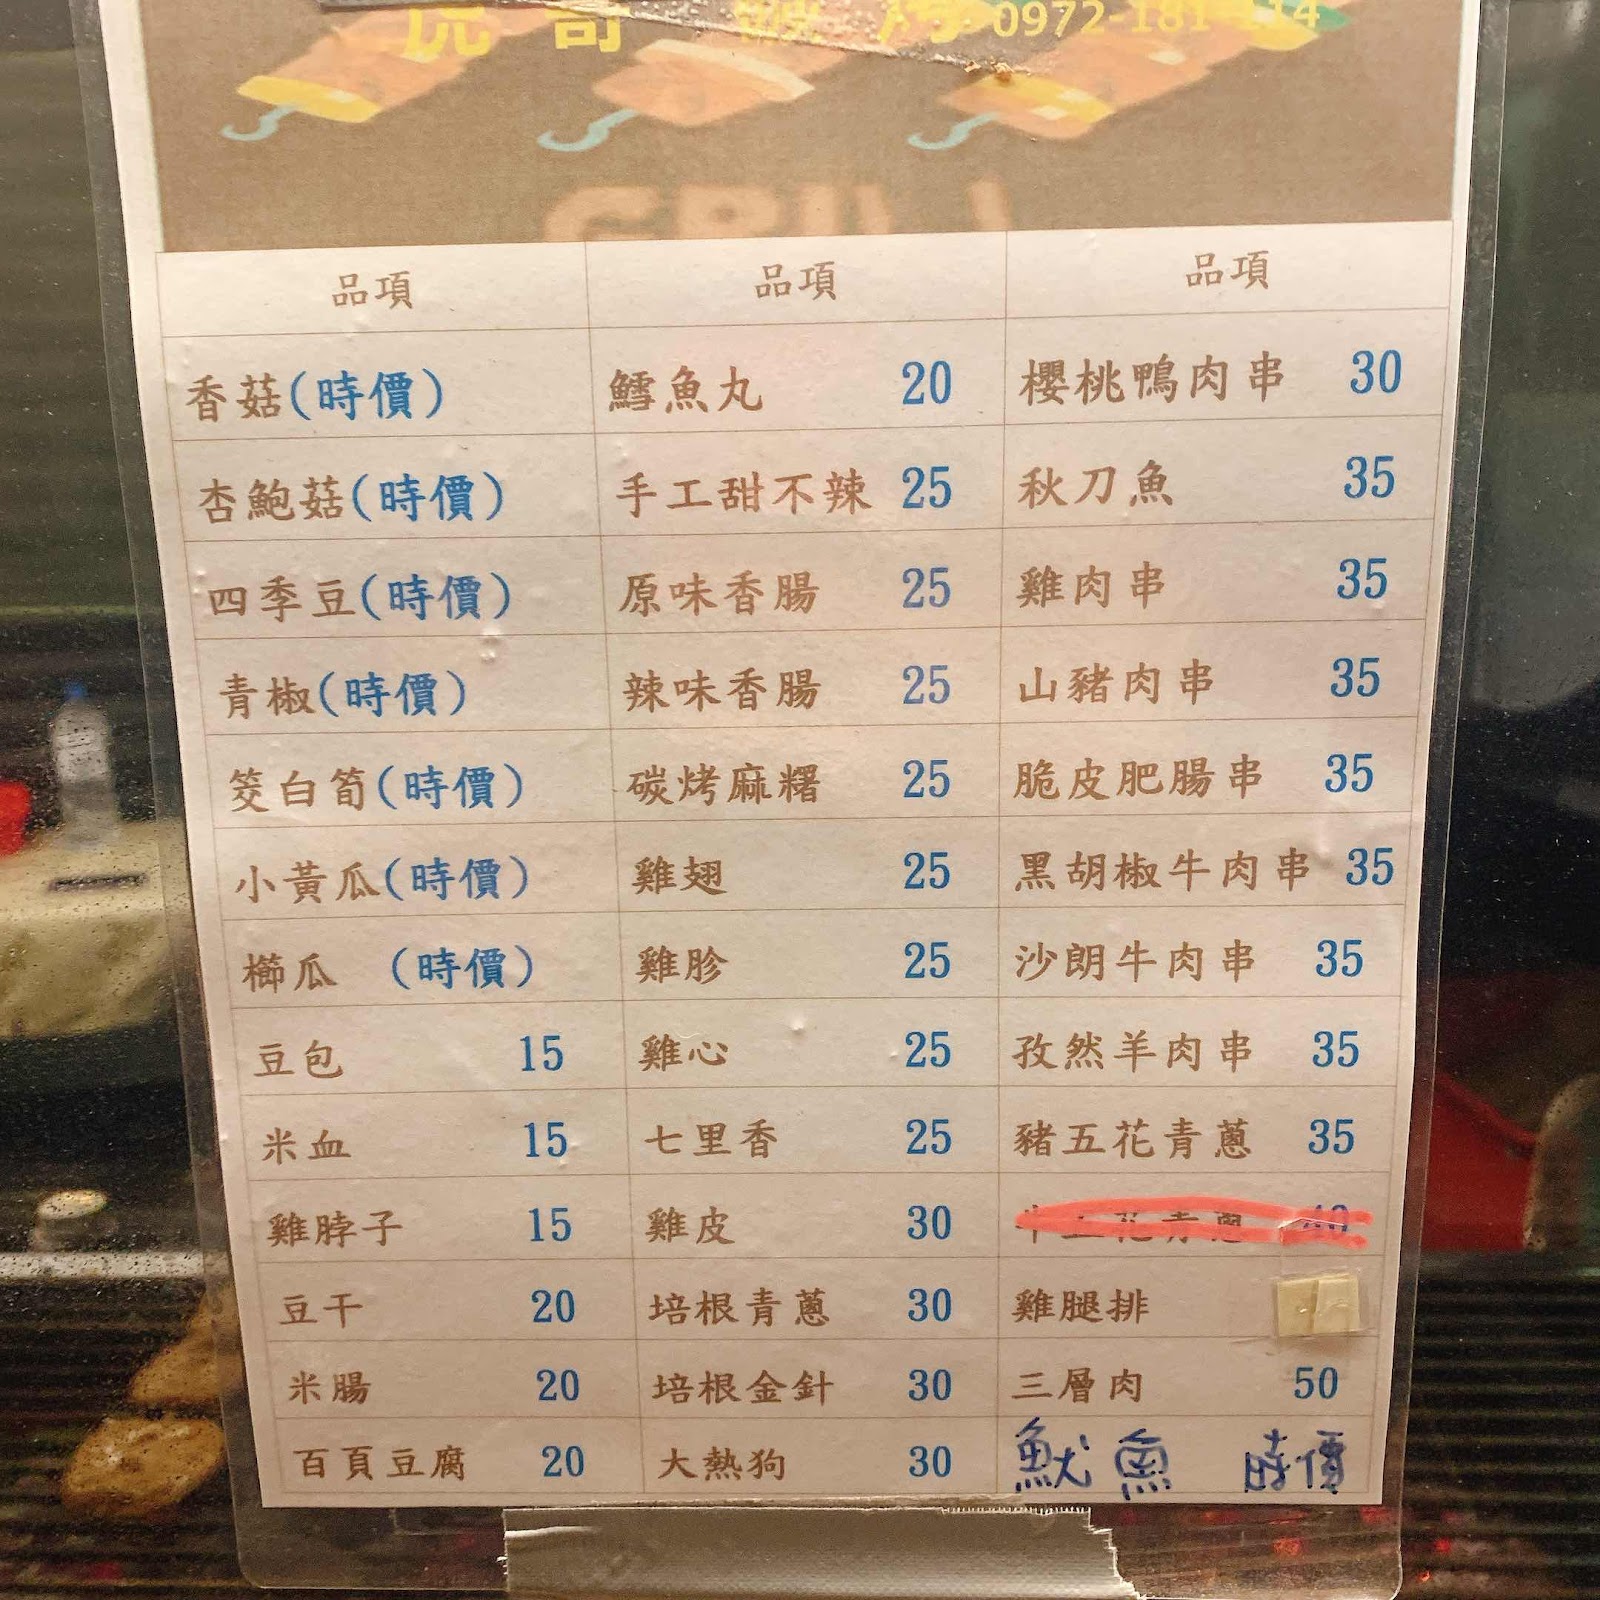 0972-181-114
品項 品項 品項
香菇(時價) 鱈魚丸 20 櫻桃鴨肉串 30
杏鮑菇(時價) 手工甜不辣 25 秋刀魚 35
四季豆(時價) 原味香腸 25 雞肉串 35
青椒(時價) 辣味香腸 25 山豬肉串 35
筊白筍(時價) 碳烤麻糬 25 脆皮肥腸串 35
小黃瓜(時價) 雞翅 25 黑胡椒牛肉串 35
櫛瓜 (時價) 雞胗 25 沙朗牛肉串 35
豆包 15 雞心 25 孜然羊肉串 35
米血 15 七里香 25 豬五花青蔥 35
雞脖子 15 雞皮 30 牛五花青蔥 40
豆干 20 培根青蔥 30 雞腿排
米腸 20 培根金針 30 三層肉 50
百頁豆腐 20 大熱狗 30 魷魚 時價